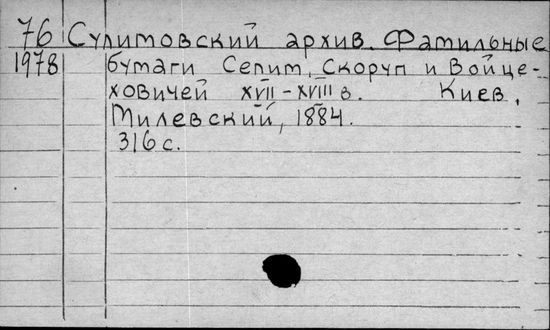 76 Сулимовский архив. Фамильные
1978 бумаги Сепим, Скоруп и Войце-
ховичей XVII-XVIII в. Киев,
Милевский, 1884.
316 с.